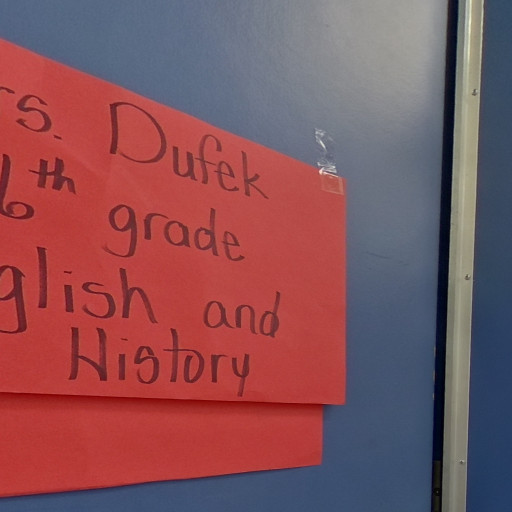 rs. Dufek
6th grade
glish and
History